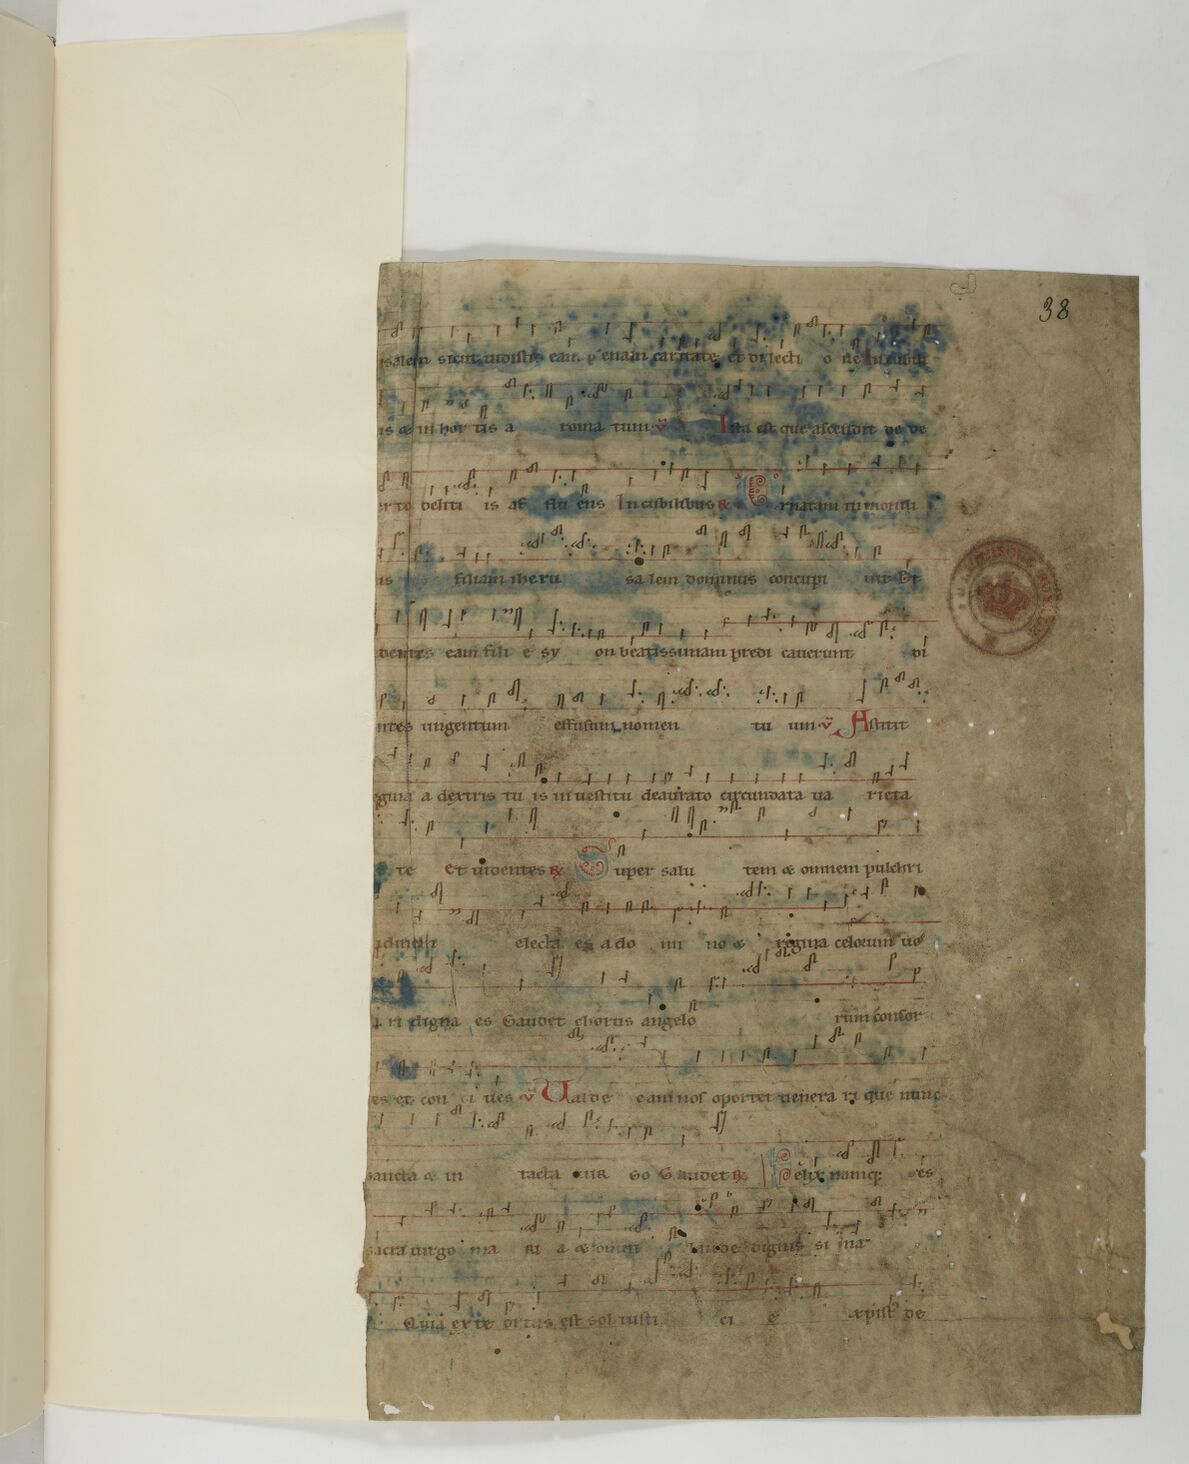 38
salem sicut vidistis eam plenam caritate et dilecti o ne In cubili
is & in hor tis a roma tum ꝟ Ista est que ascendit de de
erto deliti is af flu ens In cubilibus ℟ Ornatam in monili
is filiam iheru salem dominus concupi uit Et
dentes eam fili e sy on beatissimam predi cauerunt di
ntes ungentum effusum nomen tu um ꝟ Astitit
gina a dextris tu is in uestitu deaurato circundata ua rieta
te et uidentes ℟ Super salu tem & omnem pulchri
dinem electa es a do mi no & regina celorum uo
ri digna es Gaudet chorus angelo rum consor
es et con ci ues ꝟ Ualde eam nos oportet uenera ri que nunc
sancta & in tacta uir go Gaudet ℟ Felix namq; es
sacra uirgo ma ri a & omni laude dignis si ma
Quia ex te ortus est sol iusti ci e xpist de